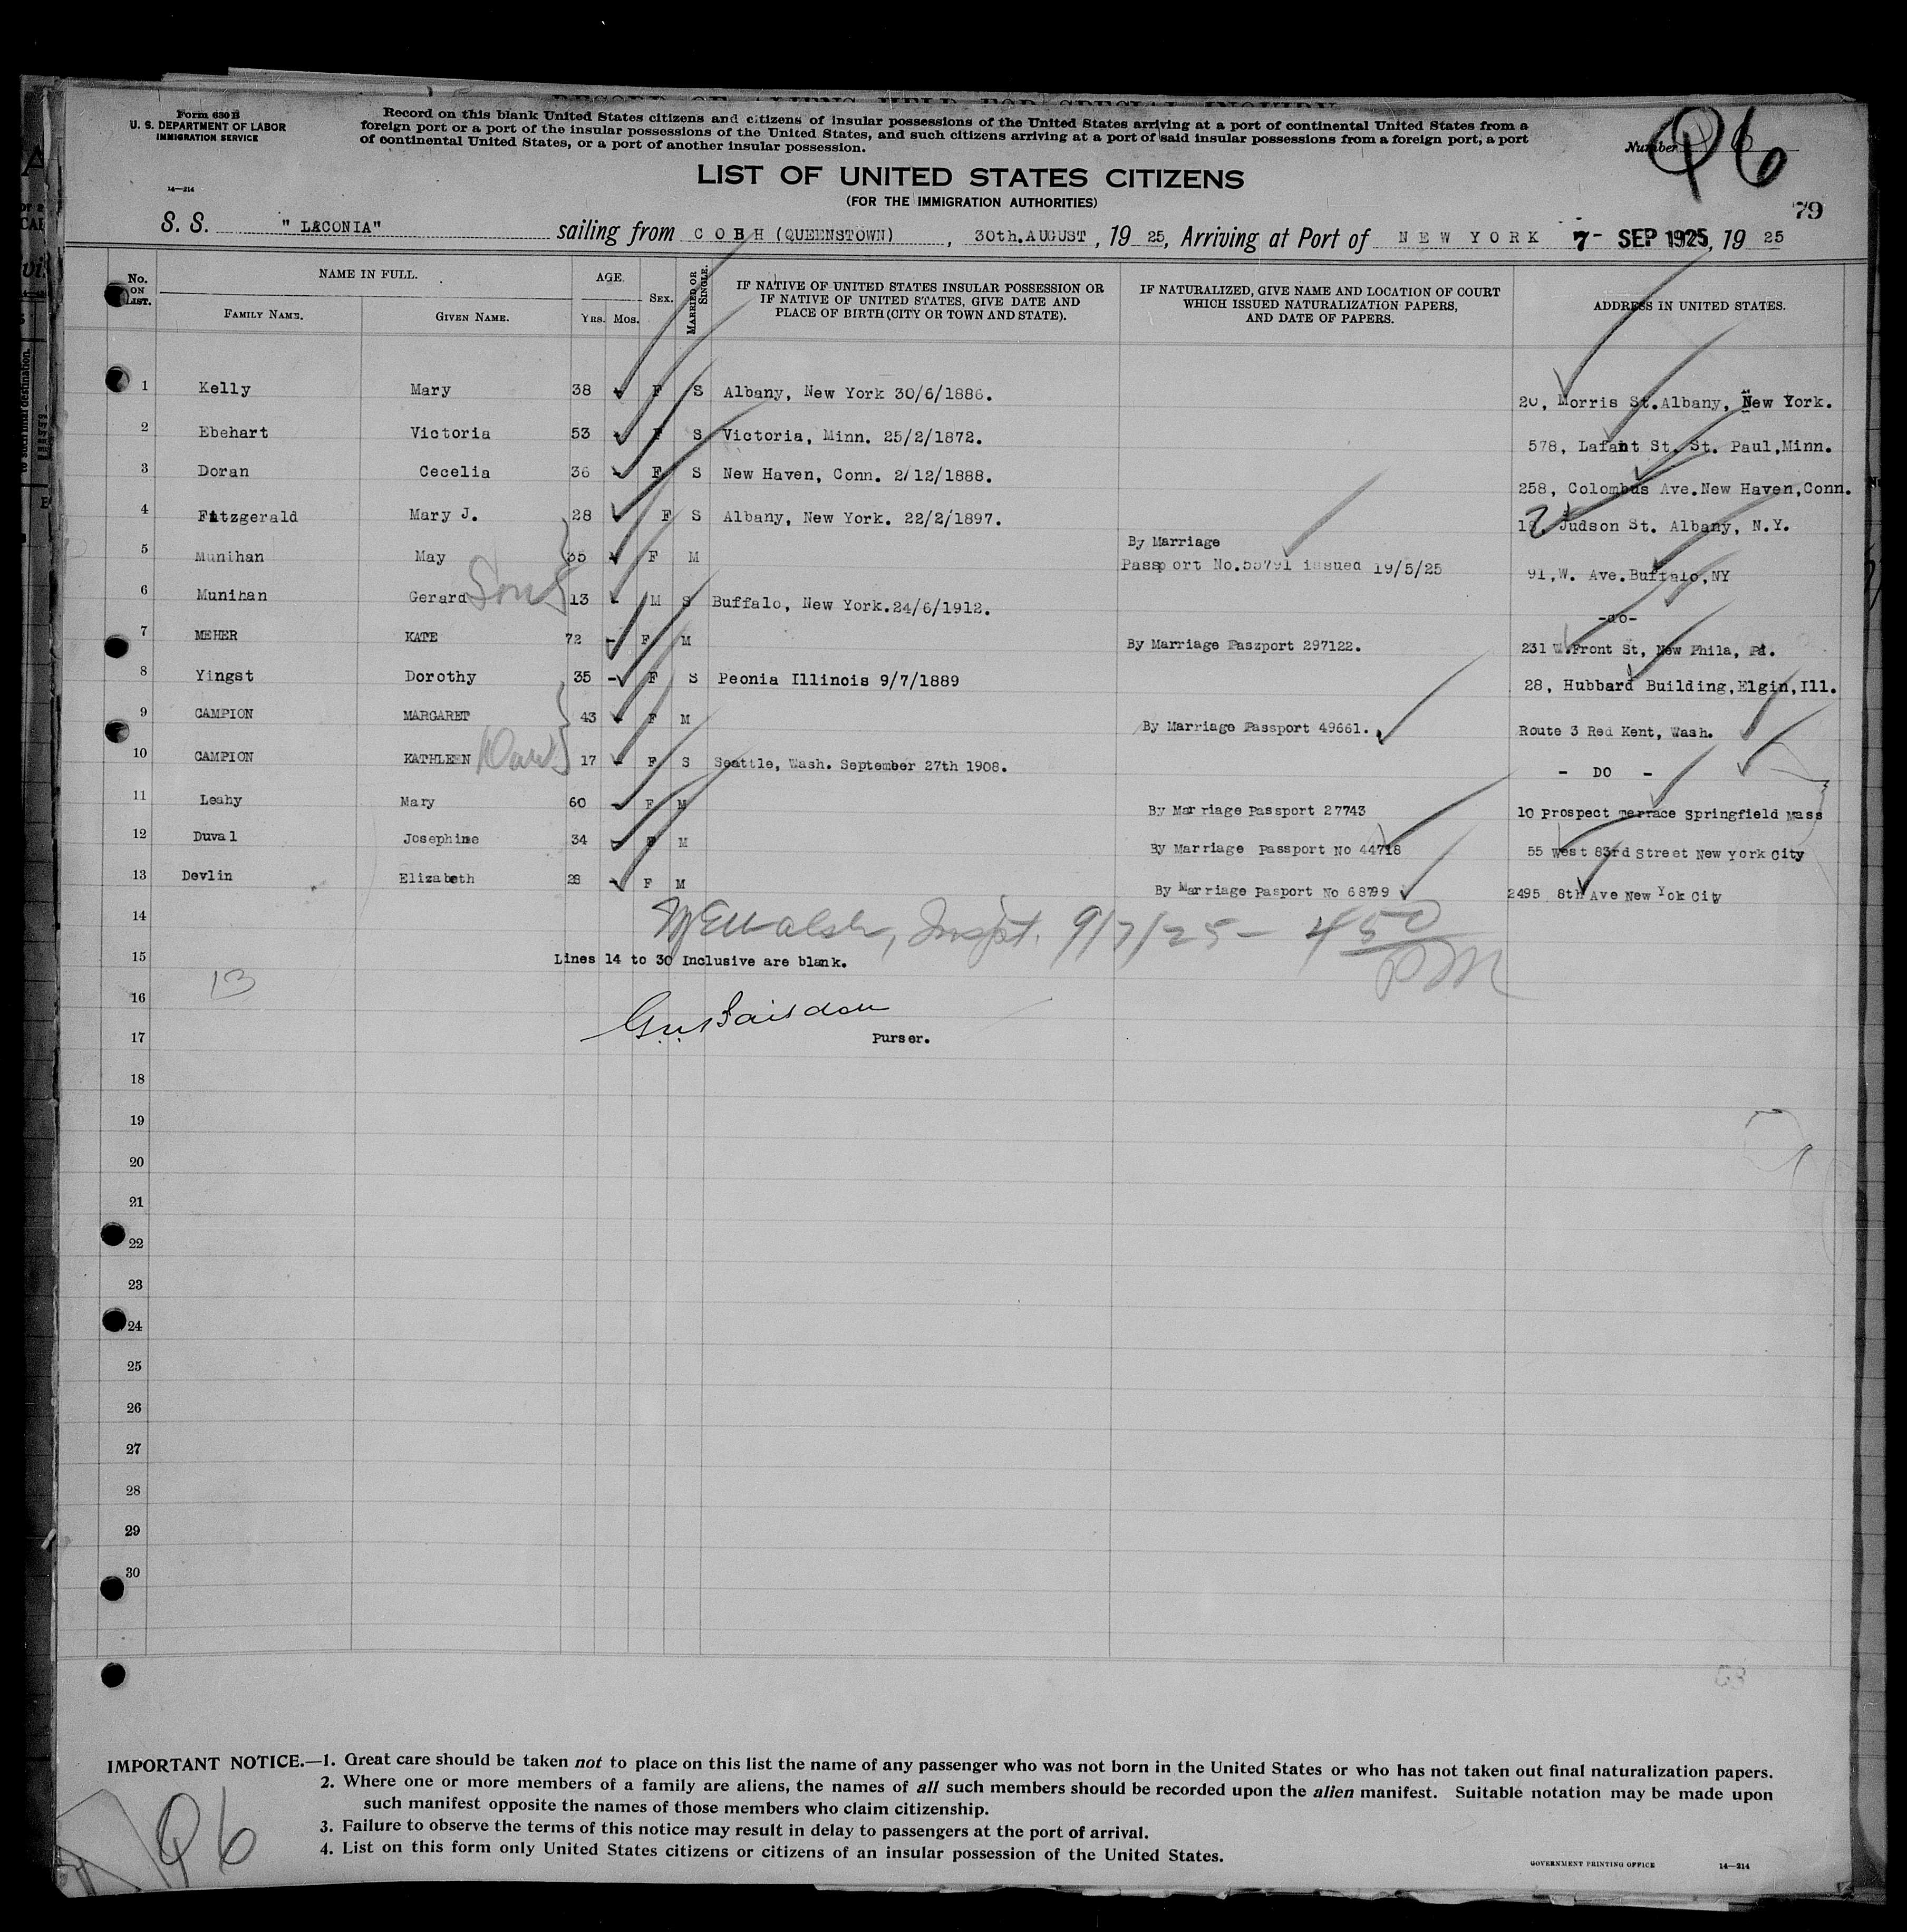 Form 630 B
U. S. DEPARTMENT OF LABOR
IMMIGRATION SERVICE
14—214
Record on this blank United States citizens and citizens of insular possessions of the United States arriving at a port of continental United States from a
foreign port or a port of the insular possessions of the United States, and such citizens arriving at a port of said insular possessions from a foreign port, a port
of continental United States, or a port of another insular possession.
Number 96
LIST OF UNITED STATES CITIZENS
(FOR THE IMMIGRATION AUTHORITIES)
79
S. S. "LACONIA" sailing from COBH (QUEENSTOWN), 30th.AUGUST, 19 25, Arriving at Port of NEW YORK 7- SEP 1925, 19 25
No. ON LIST. NAME IN FULL. FAMILY NAME. GIVEN NAME. AGE. YRS. MOS. SEX. MARRIED OR SINGLE. IF NATIVE OF UNITED STATES INSULAR POSSESSION OR IF NATIVE OF UNITED STATES, GIVE DATE AND PLACE OF BIRTH (CITY OR TOWN AND STATE). IF NATURALIZED, GIVE NAME AND LOCATION OF COURT WHICH ISSUED NATURALIZATION PAPERS, AND DATE OF PAPERS. ADDRESS IN UNITED STATES.
1 Kelly Mary 38 F S Albany, New York 30/6/1886. 20, Morris St.Albany, New York.
2 Ebehart Victoria 53 F S Victoria, Minn. 25/2/1872. 578, Lafant St. St. Paul,Minn.
3 Doran Cecelia 36 F S New Haven, Conn. 2/12/1888. 258, Colombus Ave.New Haven,Conn.
4 Fitzgerald Mary J. 28 F S Albany, New York. 22/2/1897. Judson St. Albany, N.Y.
5 Munihan May 35 F M By Marriage Passport No.55791 issued 19/5/25 91,W. Ave.Buffalo,NY
6 Munihan Gerard Son 13 M S Buffalo, New York.24/6/1912. -do-
7 MEHER KATE 72 F M By Marriage Passport 297122. 231 W.Front St, New Phila, Pa.
8 Yingst Dorothy 35 F S Peonia Illinois 9/7/1889 28, Hubbard Building,Elgin,Ill.
9 CAMPION MARGARET 43 F M By Marriage Passport 49661. Route 3 Red Kent, Wash.
10 CAMPION KATHLEEN Dau 17 F S Seattle, Wash. September 27th 1908. - DO -
11 Leahy Mary 60 F M By Marriage Passport 27743 10 Prospect Terrace Springfield Mass
12 Duval Josephine 34 F M By Marriage Passport No 44718 55 West 83rd Street New York City
13 Devlin Elizabeth 28 F M By Marriage Pasport No 68799 2495 8th Ave New Yok City
14 Walsh, Inspt. 9/7/25 - 4 50 PM
15 Lines 14 to 30 Inclusive are blank.
13
16
17 Purser.
18
19
20
21
22
23
24
25
26
27
28
29
30
IMPORTANT NOTICE.—1. Great care should be taken not to place on this list the name of any passenger who was not born in the United States or who has not taken out final naturalization papers.
2. Where one or more members of a family are aliens, the names of all such members should be recorded upon the alien manifest. Suitable notation may be made upon
such manifest opposite the names of those members who claim citizenship.
3. Failure to observe the terms of this notice may result in delay to passengers at the port of arrival.
4. List on this form only United States citizens or citizens of an insular possession of the United States.
GOVERNMENT PRINTING OFFICE 14—214
96